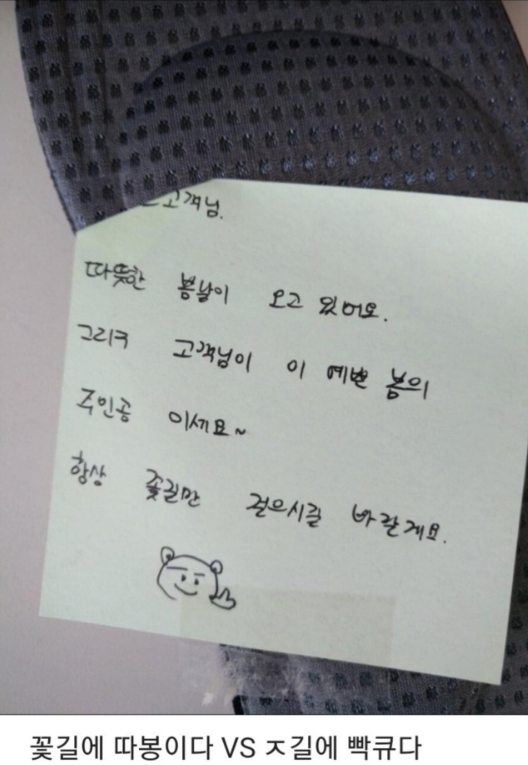 고객님.
따뜻한 봄날이 오고 있어요.
그리고 고객님이 이 예쁜 봄의
주인공 이세요~
항상 꽃길만 걸으시길 바랄게요.
꽃길에 따봉이다 VS ㅈ길에 빡큐다